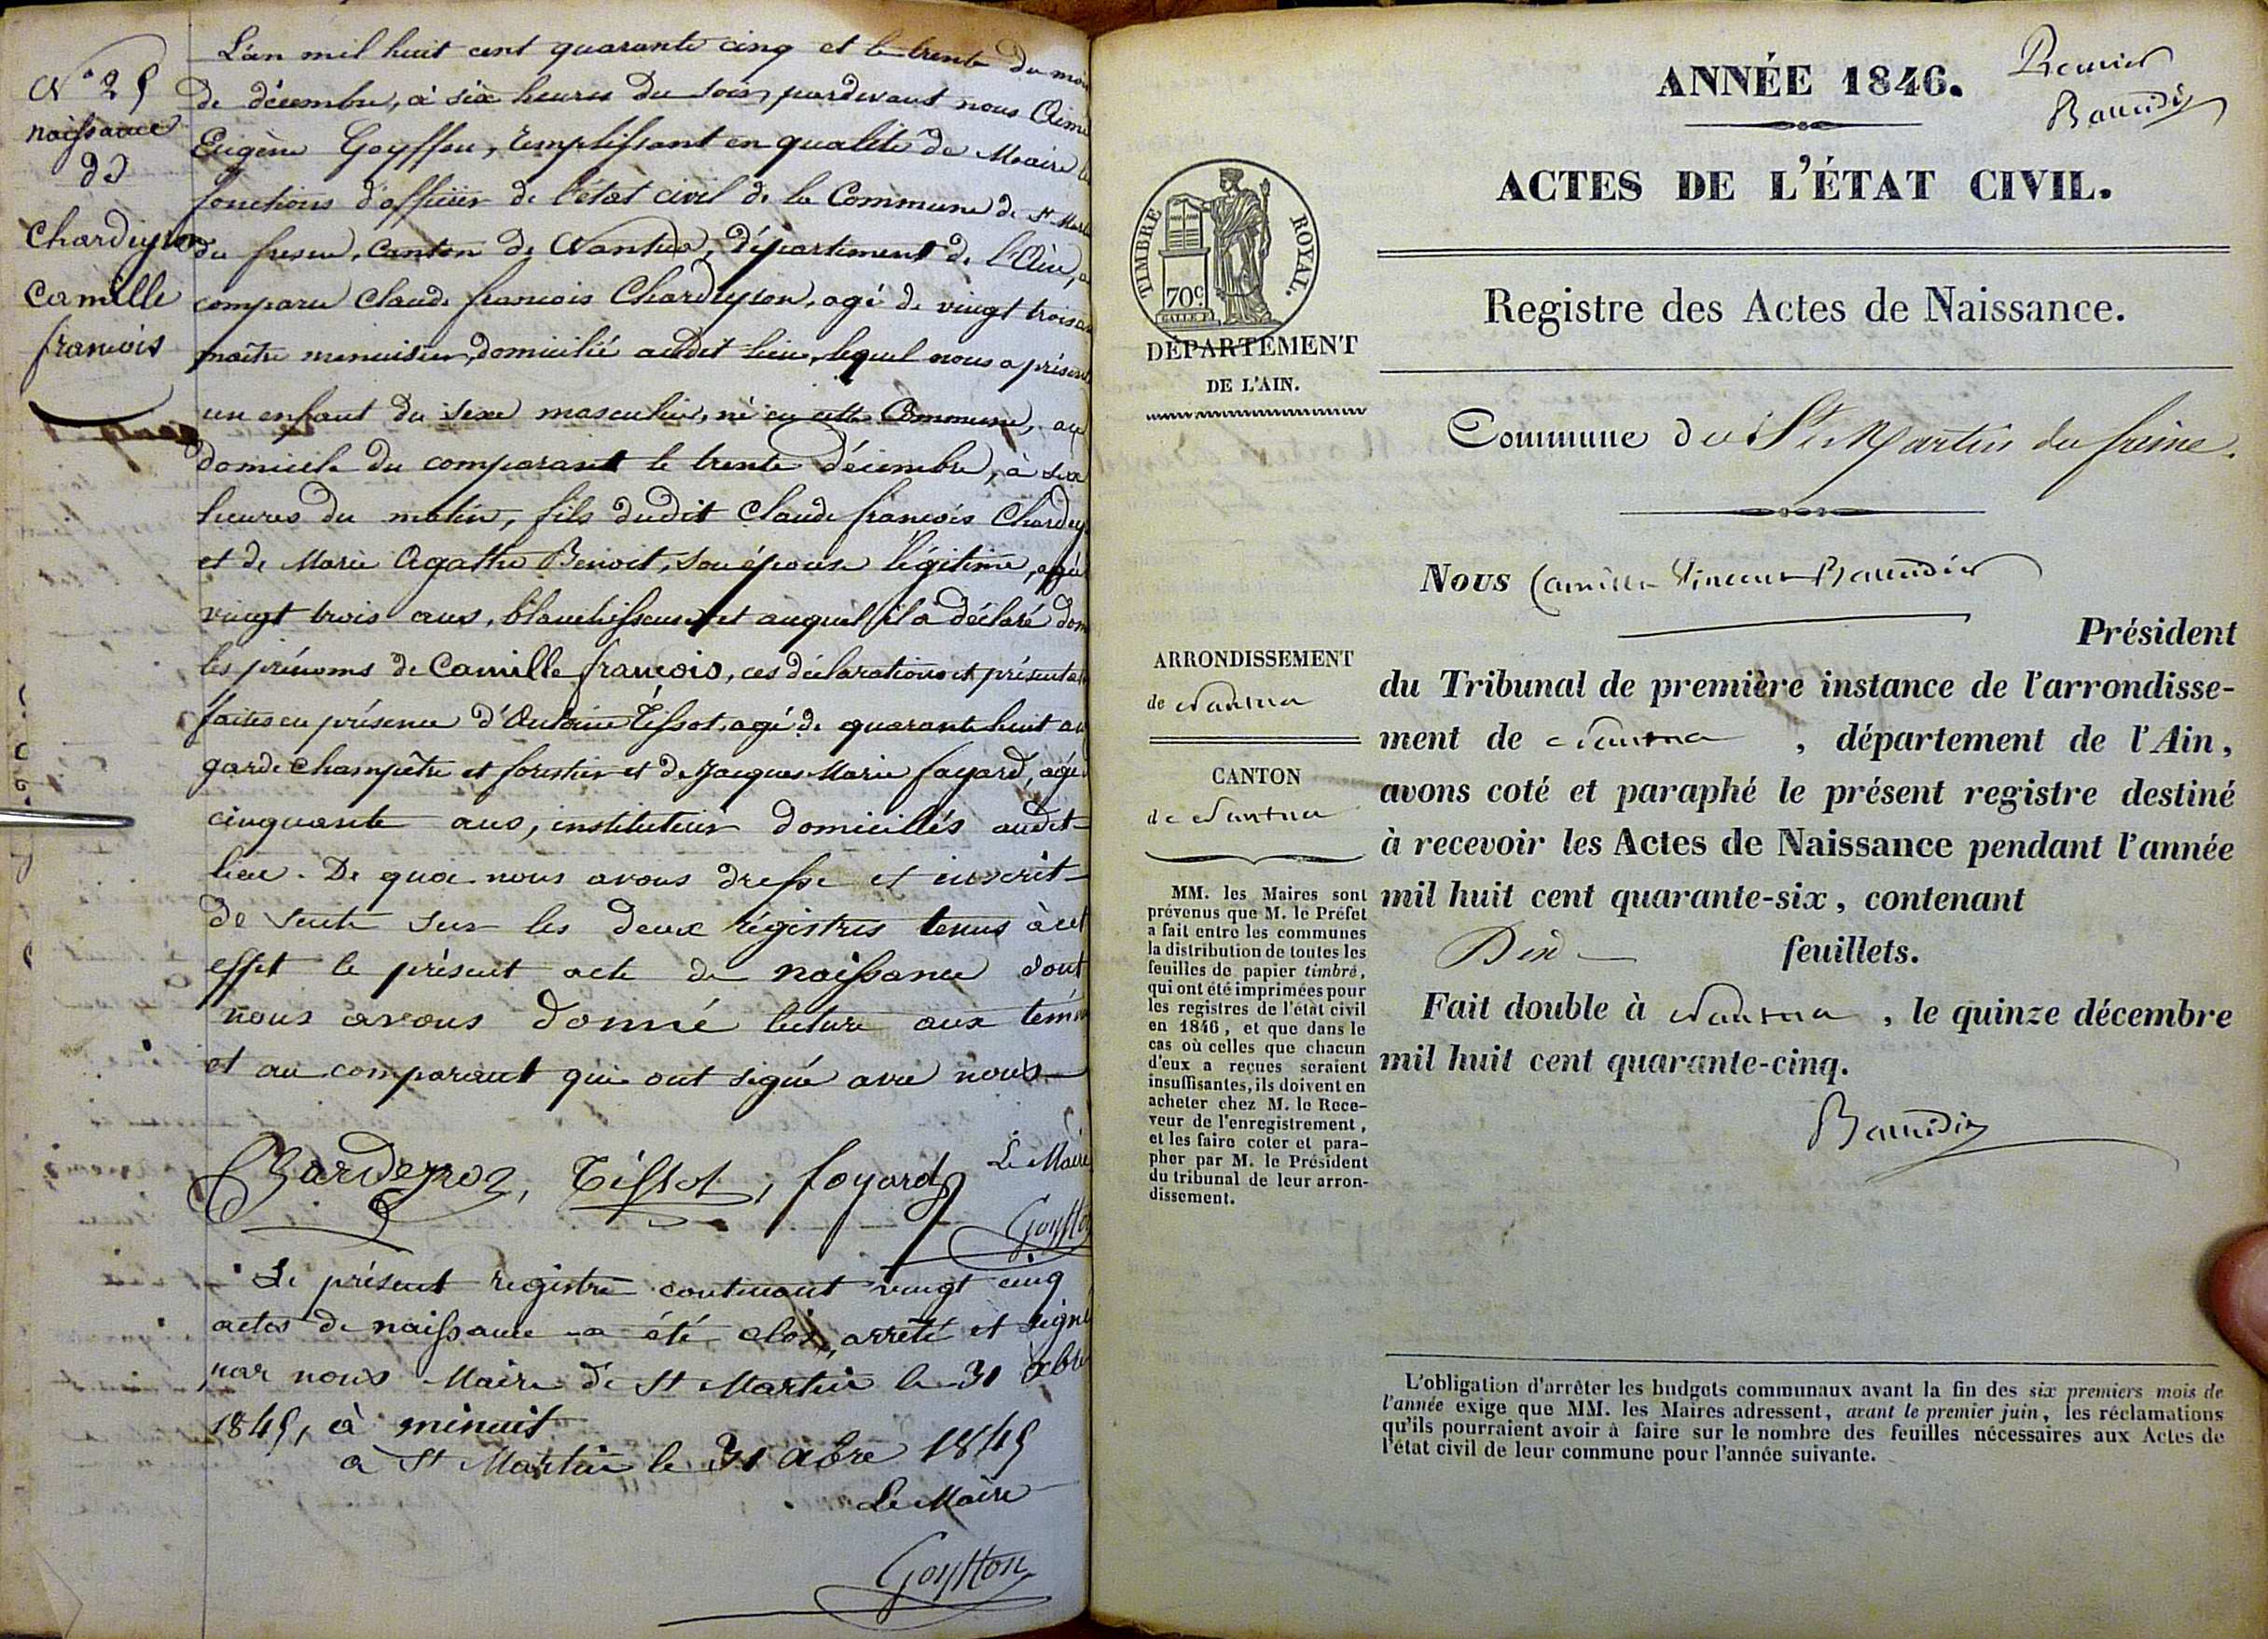 N° 25
naissance
de
Chardeyron
Camille
françois
L'an mil huit cent quarante cinq et le trente du mois
de décembre, à six heures du soir, pardevant nous Aimé
Eugène Goyffon, remplissant en qualité de Maire les
fonctions d'officier de l'état civil de la Commune de St Martin
du fresne, Canton de Nantua, département de l'Ain, a
comparu Claude françois Chardeyron, agé de vingt trois ans
maître menuisier, domicilié audit lieu, lequel nous a présenté
un enfant du sexe masculin, né en cette Commune, au
domicile du comparant le trente décembre, à six
heures du matin, fils dudit Claude françois Chardey
et de Marie Agathe Benoit, son épouse légitime, agée
vingt trois ans, blanchisseuse et auquel il a déclaré don
les prénoms de Camille françois, ces déclarations et présentation
faites en présence d'Antoine Tissot, agé de quarante huit ans
garde champêtre et forestier et de Jacques Marie fayard, agé
cinquante ans, instituteur domiciliés audit
lieu. De quoi nous avons dressé et inscrit
de suite sur les deux régistres tenus à cet
effet le présent acte de naissance dont
nous avons donné lecture aux témoins
et au comparant qui ont signé avec nous
Chardeyron, Tissot, foyard
Le Maire
Goyffon
Le présent registre contenant vingt cinq
actes de naissance a été clos, arrêté et signé
par nous Maire de St Martin le 31 xbre
1845, à minuit
a St Martin le 31 xbre 1845
Le Maire
Goyffon
ANNÉE 1846.
Premier
Baudin
ACTES DE L'ÉTAT CIVIL.
TIMBRE ROYAL.
70c.
DÉPARTEMENT
DE L'AIN.
Registre des Actes de Naissance.
Commune de St Martin du fresne.
Nous Camille Vincent Baudin
Président
ARRONDISSEMENT
de Nantua
du Tribunal de première instance de l'arrondisse-
ment de Nantua, département de l'Ain,
CANTON
de Nantua
avons coté et paraphé le présent registre destiné
à recevoir les Actes de Naissance pendant l'année
mil huit cent quarante-six, contenant
Dix feuillets.
Fait double à Nantua, le quinze décembre
mil huit cent quarante-cinq.
Baudin
MM. les Maires sont
prévenus que M. le Préfet
a fait entre les communes
la distribution de toutes les
feuilles de papier timbré,
qui ont été imprimées pour
les registres de l'état civil
en 1846, et que dans le
cas où celles que chacun
d'eux a reçues seraient
insuffisantes, ils doivent en
acheter chez M. le Rece-
veur de l'enregistrement,
et les faire coter et para-
pher par M. le Président
du tribunal de leur arron-
dissement.
L'obligation d'arrêter les budgets communaux avant la fin des six premiers mois de
l'année exige que MM. les Maires adressent, avant le premier juin, les réclamations
qu'ils pourraient avoir à faire sur le nombre des feuilles nécessaires aux Actes de
l'état civil de leur commune pour l'année suivante.